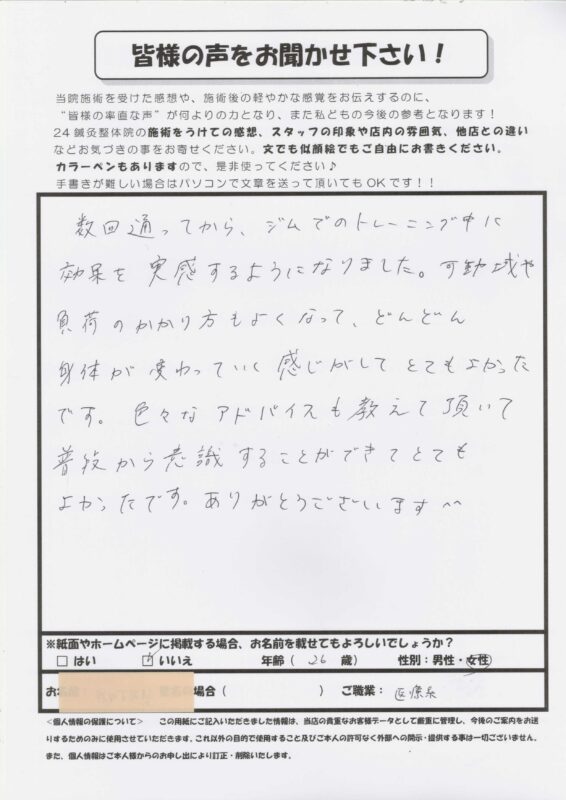 皆様の声をお聞かせ下さい！
当院施術を受けた感想や、施術後の軽やかな感覚をお伝えするのに、
“皆様の率直な声”が何よりの力となり、また私どもの今後の参考となります！
24鍼灸整体院の施術をうけての感想、スタッフの印象や店内の雰囲気、他店との違い
などお気づきの事をお寄せください。文でも似顔絵でもご自由にお書きください。
カラーペンもありますので、是非使ってください♪
手書きが難しい場合はパソコンで文章を送って頂いてもOKです！！
数回通ってから、ジムでのトレーニング中に
効果を実感するようになりました。可動域や
負荷のかかり方もよくなって、どんどん
身体が変わっていく感じがしてとてもよかった
です。色々なアドバイスも教えて頂いて
普段から意識することができてとても
よかったです。ありがとうございます^^
※紙面やホームページに掲載する場合、お名前を載せてもよろしいでしょうか？
□ はい □ いいえ 年齢（ 26 歳） 性別：男性・女性
お の場合（ ） ご職業：医療系
＜個人情報の保護について＞ この用紙にご記入いただきました情報は、当店の貴重なお客様データとして厳重に管理し、今後のご案内をお送
りするためのみに使用させていただきます。これ以外の目的で使用すること及びご本人の許可なく外部への開示・提供する事は一切ございません。
また、個人情報はご本人様からのお申し出により訂正・削除いたします。